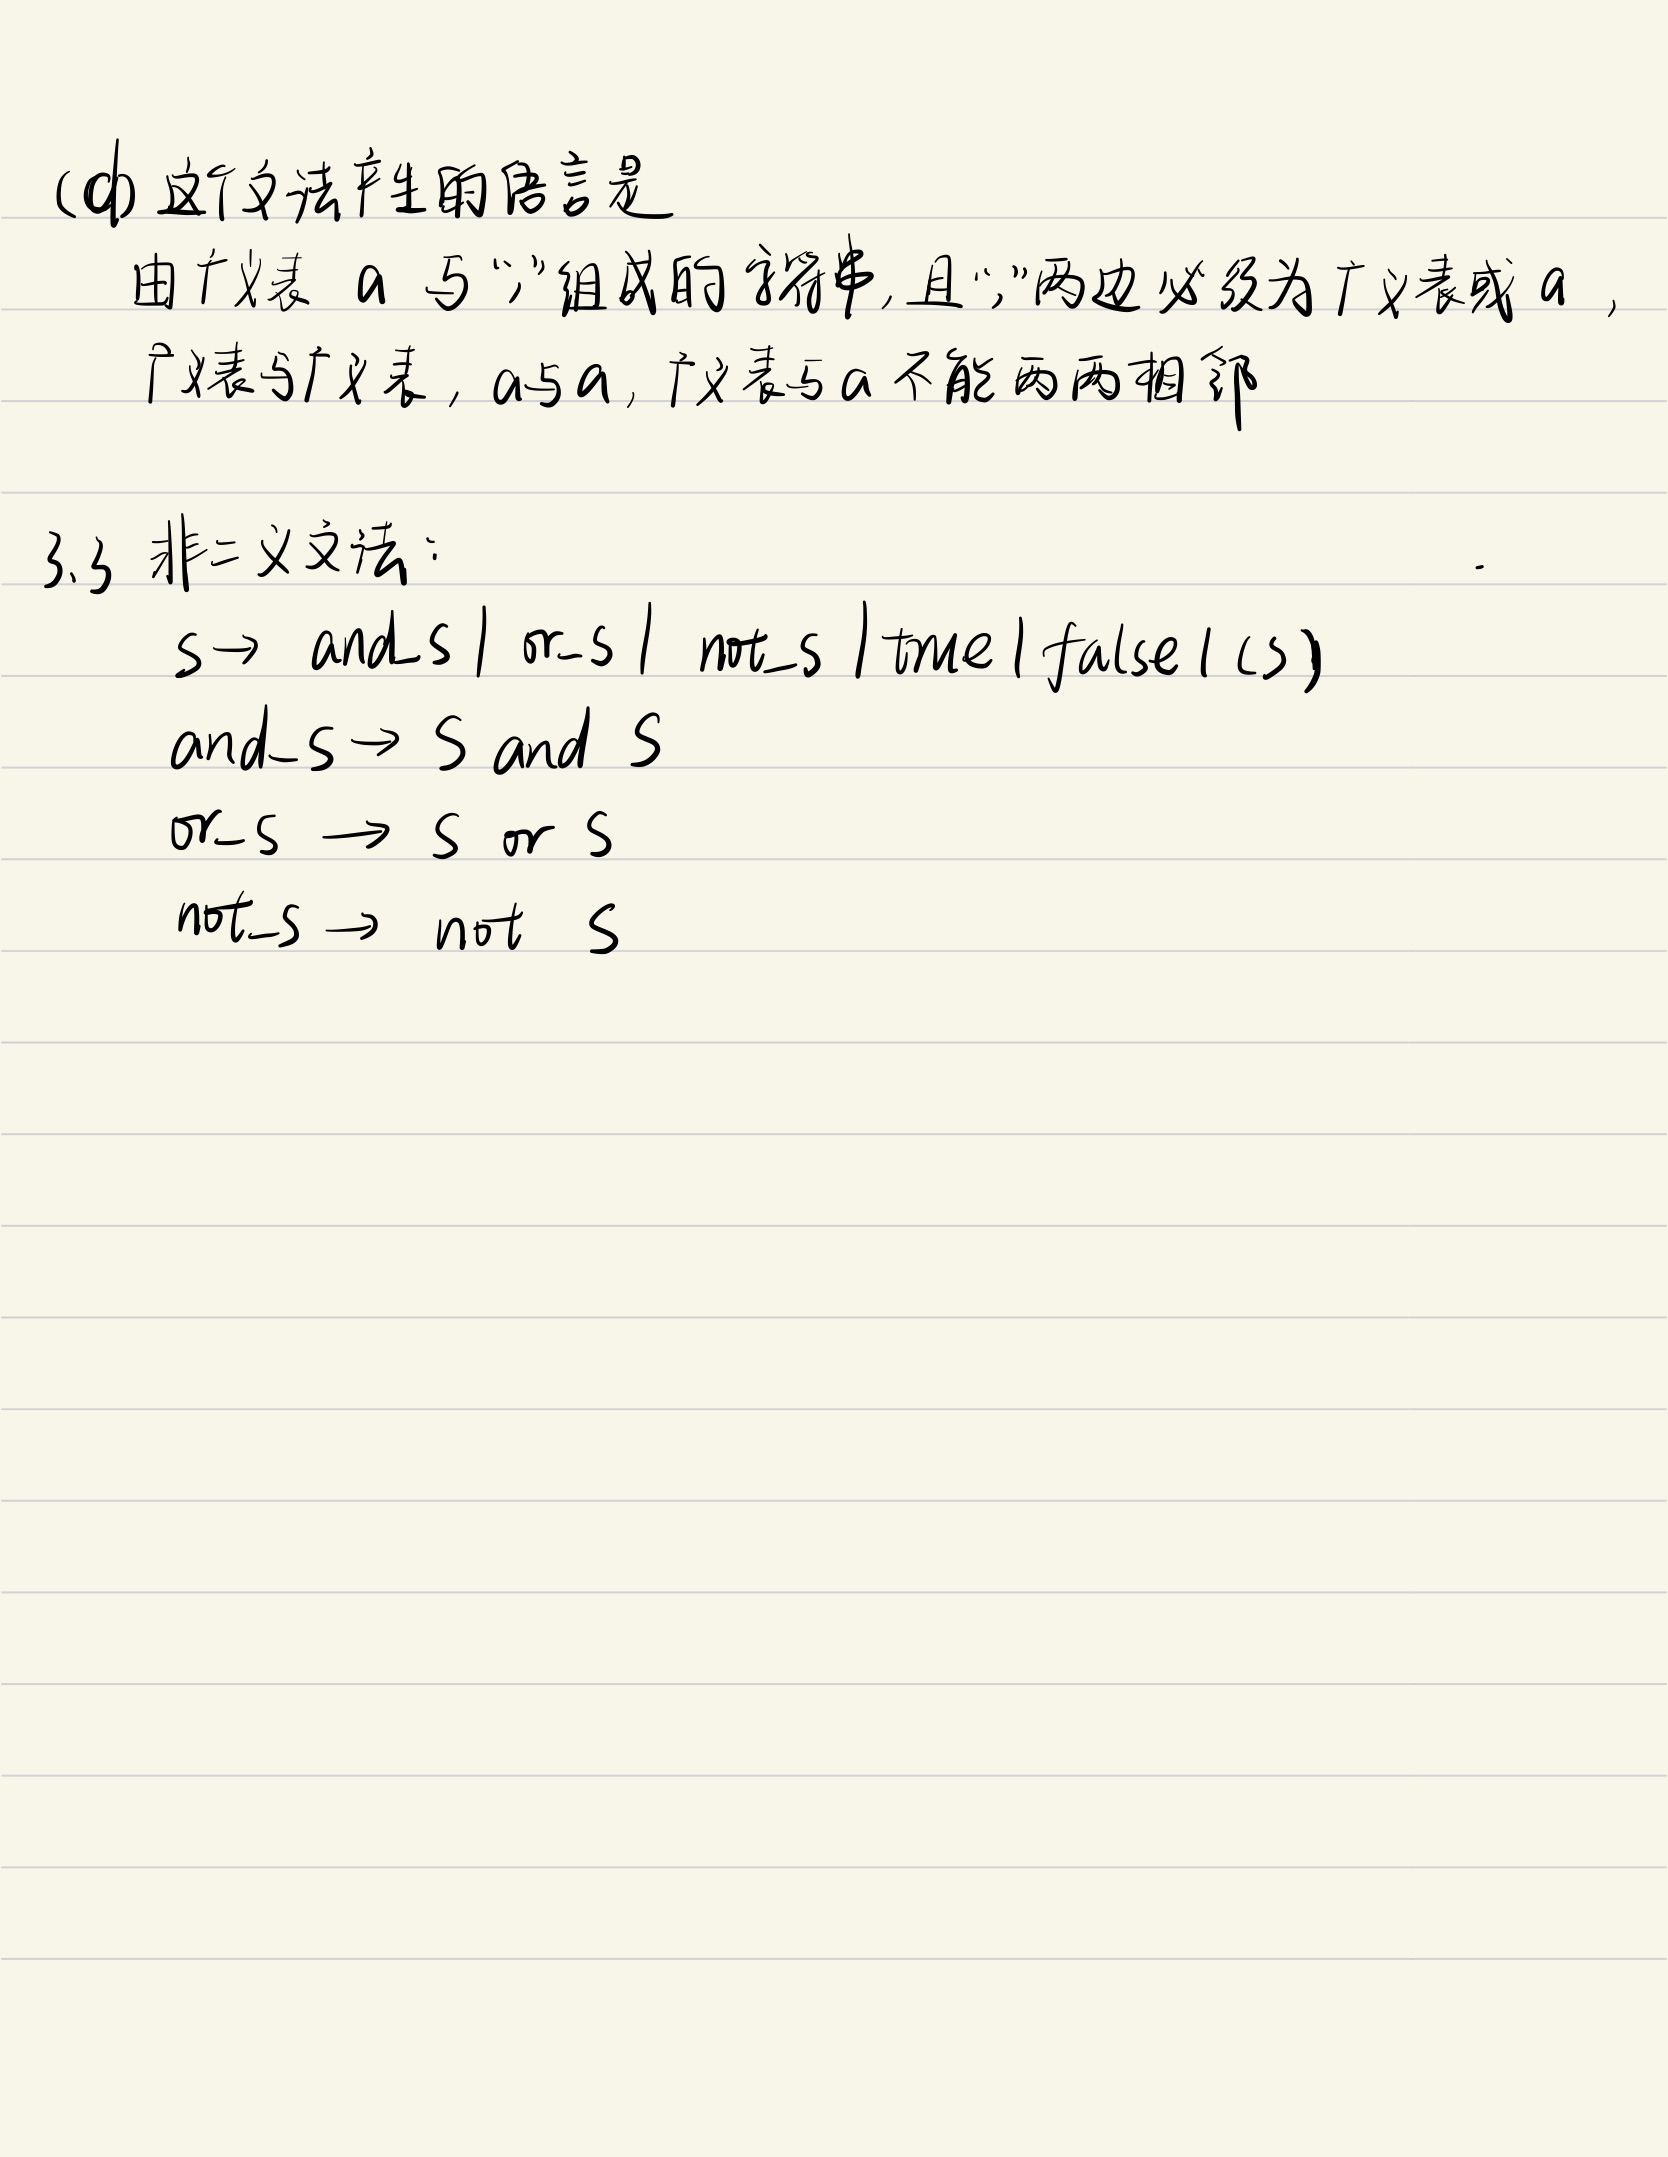 (d) 这个文法产生的语言是
由广义表 a 与“,”组成的字符串,且“,”两边必须为广义表或 a ,
广义表与广义表, a与a, 广义表与 a 不能两两相邻
3.3 非二义文法:
s → and_s | or_s | not_s | true | false | (s)
and_s → s and s
or_s → s or s
not_s → not s